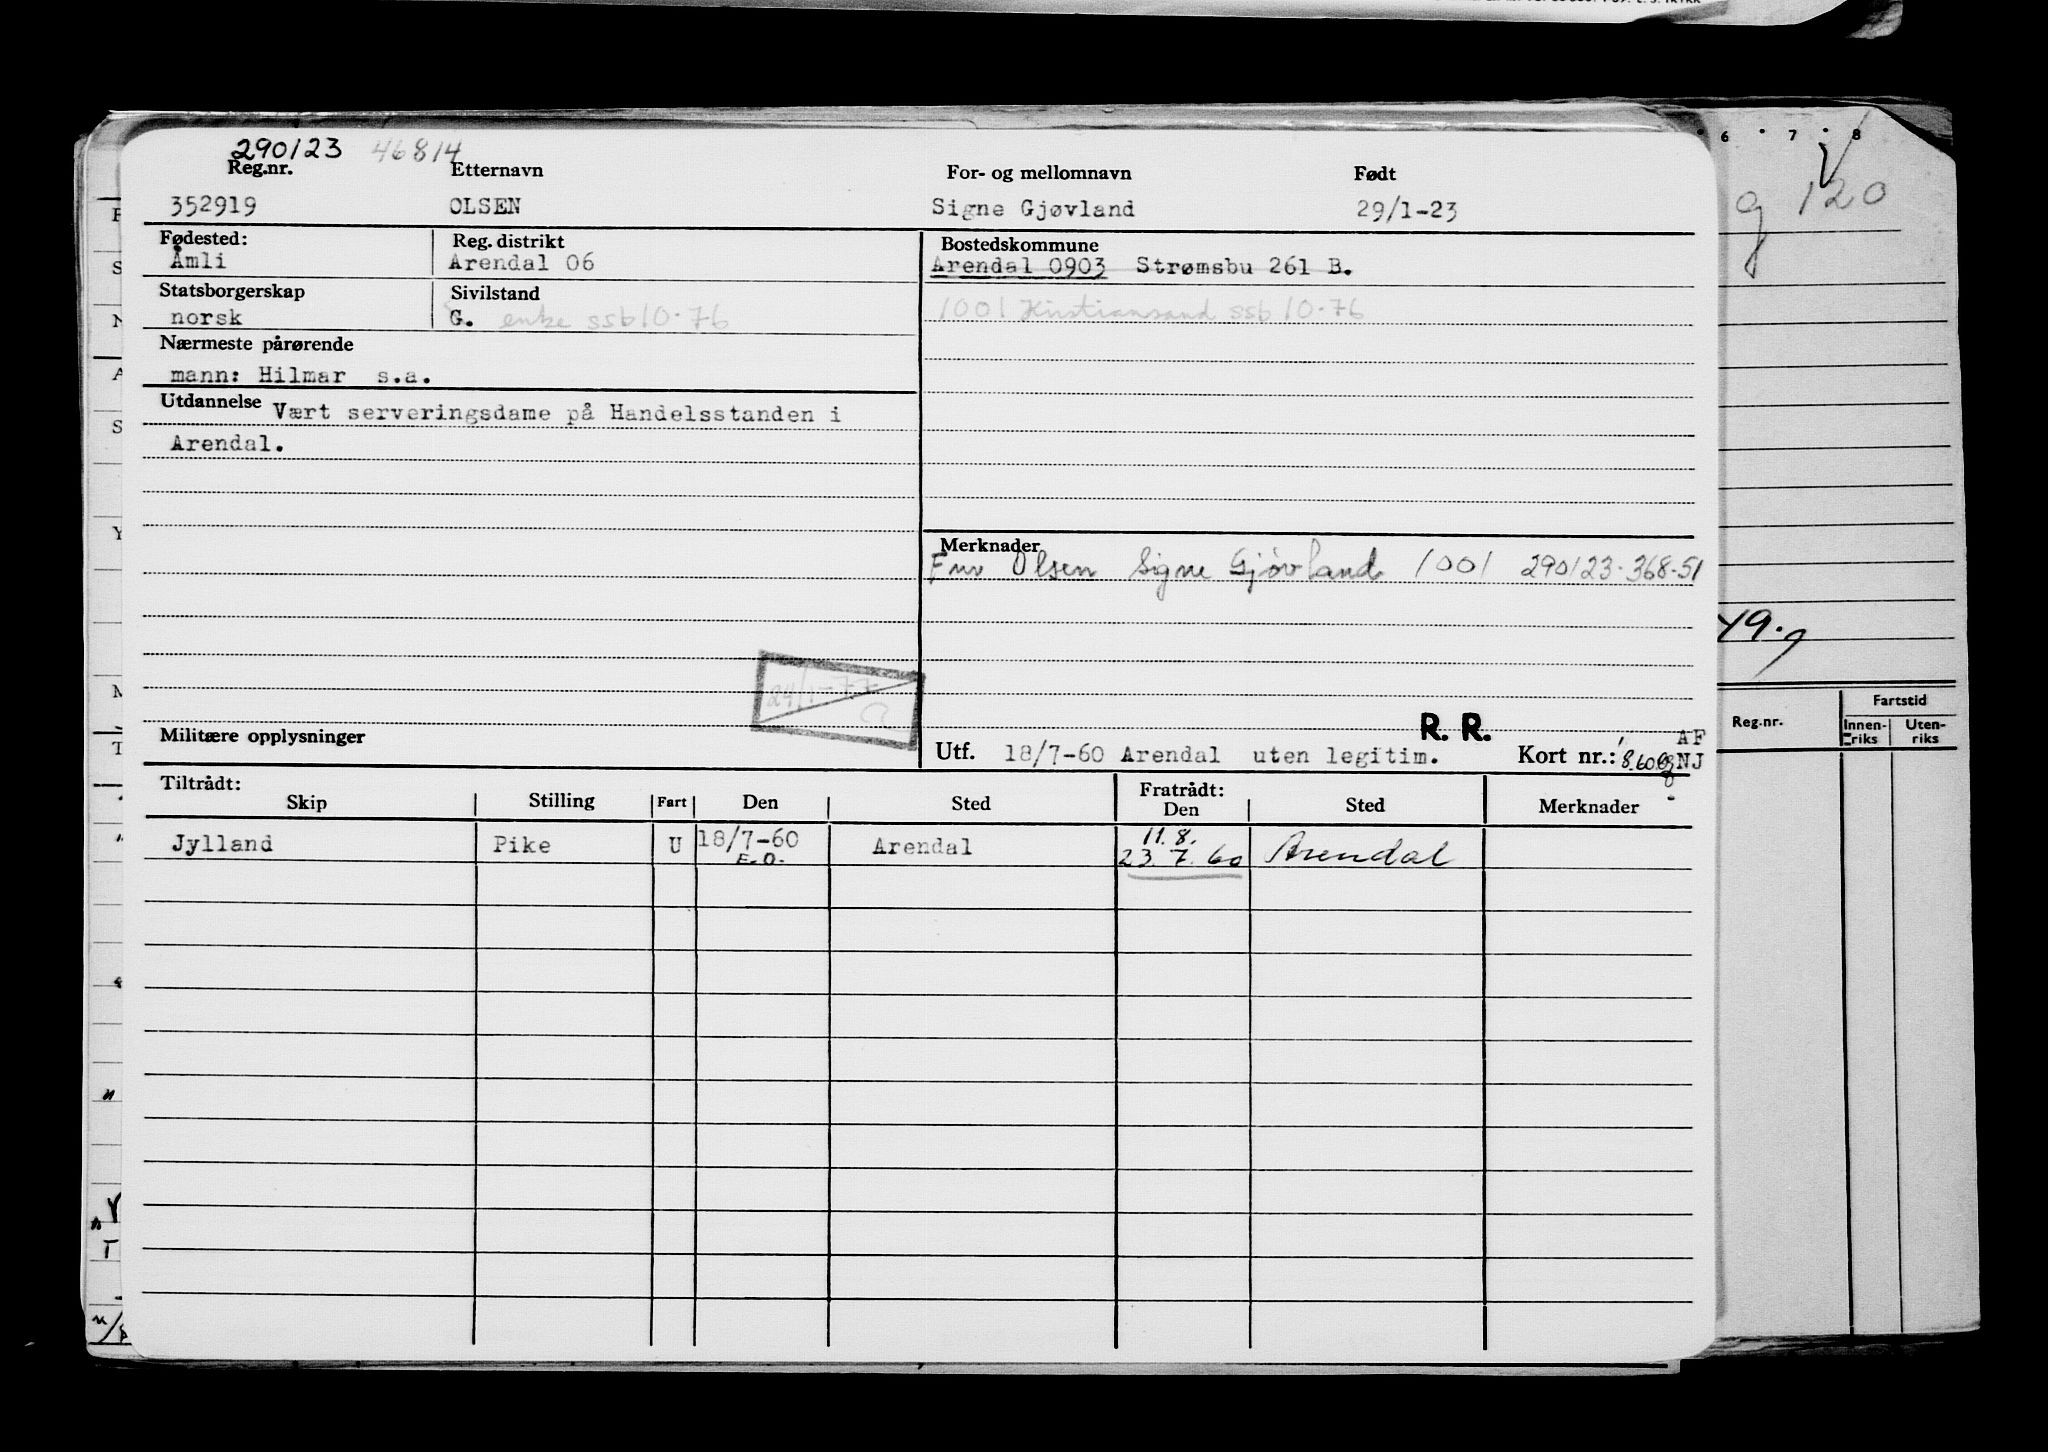 290123 46814
Reg.nr. Etternavn For- og mellomnavn Født
352919 OLSEN Signe Gjøvland 29/1-23
Fødested: Reg. distrikt Bostedskommune
Åmli Arendal 06 Arendal 0903 Strømsbu 261 B.
Statsborgerskap Sivilstand
norsk G. enke ssb 10-76 1001 Kristiansand ssb 10-76
Nærmeste pårørende
mann: Hilmar s.a.
Utdannelse Vært serveringsdame på Handelsstanden i
Arendal.
Merknader
Fnv Olsen Signe Gjøvland 1001 290123-368-51
24/1-77
Militære opplysninger
R. R.
Utf. 18/7-60 Arendal uten legitim. Kort nr.: AF
NJ
Tiltrådt: Fratrådt:
Skip Stilling Fart Den Sted Den Sted Merknader
Jylland Pike U 18/7-60 Arendal 23.7.60 Arendal
11.8.
E.O.
6 7 8
g 120
49.
Fartstid
Reg.nr. Innen-riks Uten-riks